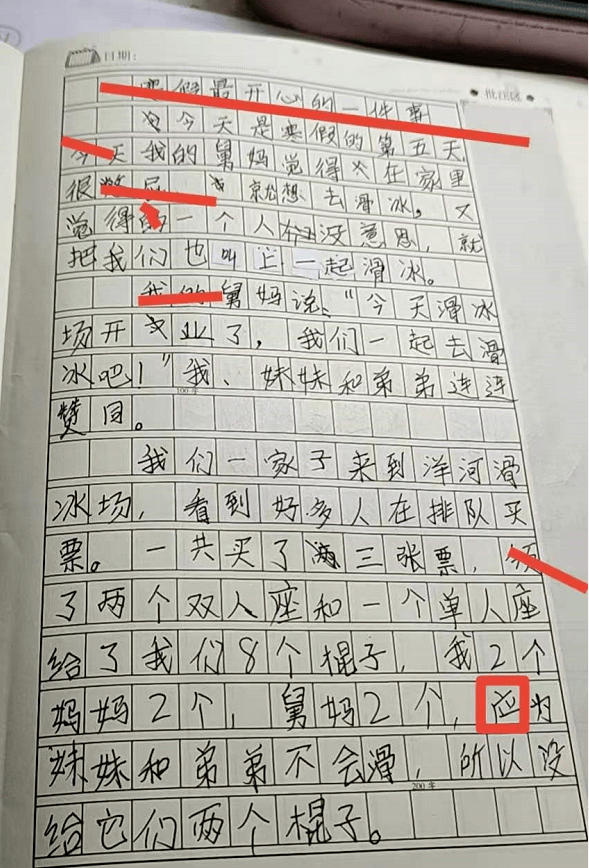 日期:
批注区
寒假最开心的一件事
今天是寒假的第五天,
今天我的舅妈觉得在家里
很 就想去滑冰。又
觉得的一个人没意思,就
把我们也叫上一起滑冰。
我的舅妈说:“今天滑冰
场开业了,我们一起去滑
冰吧!”我、妹妹和弟弟连连
100字
赞同。
我们一家子来到洋河滑
冰场,看到好多人在排队买
票。一共买了三张票,领
了两个双人座和一个单人座
给了我们8个棍子,我2个
妈妈2个,舅妈2个,应为
妹妹和弟弟不会滑,所以没
200字
给它们两个棍子。